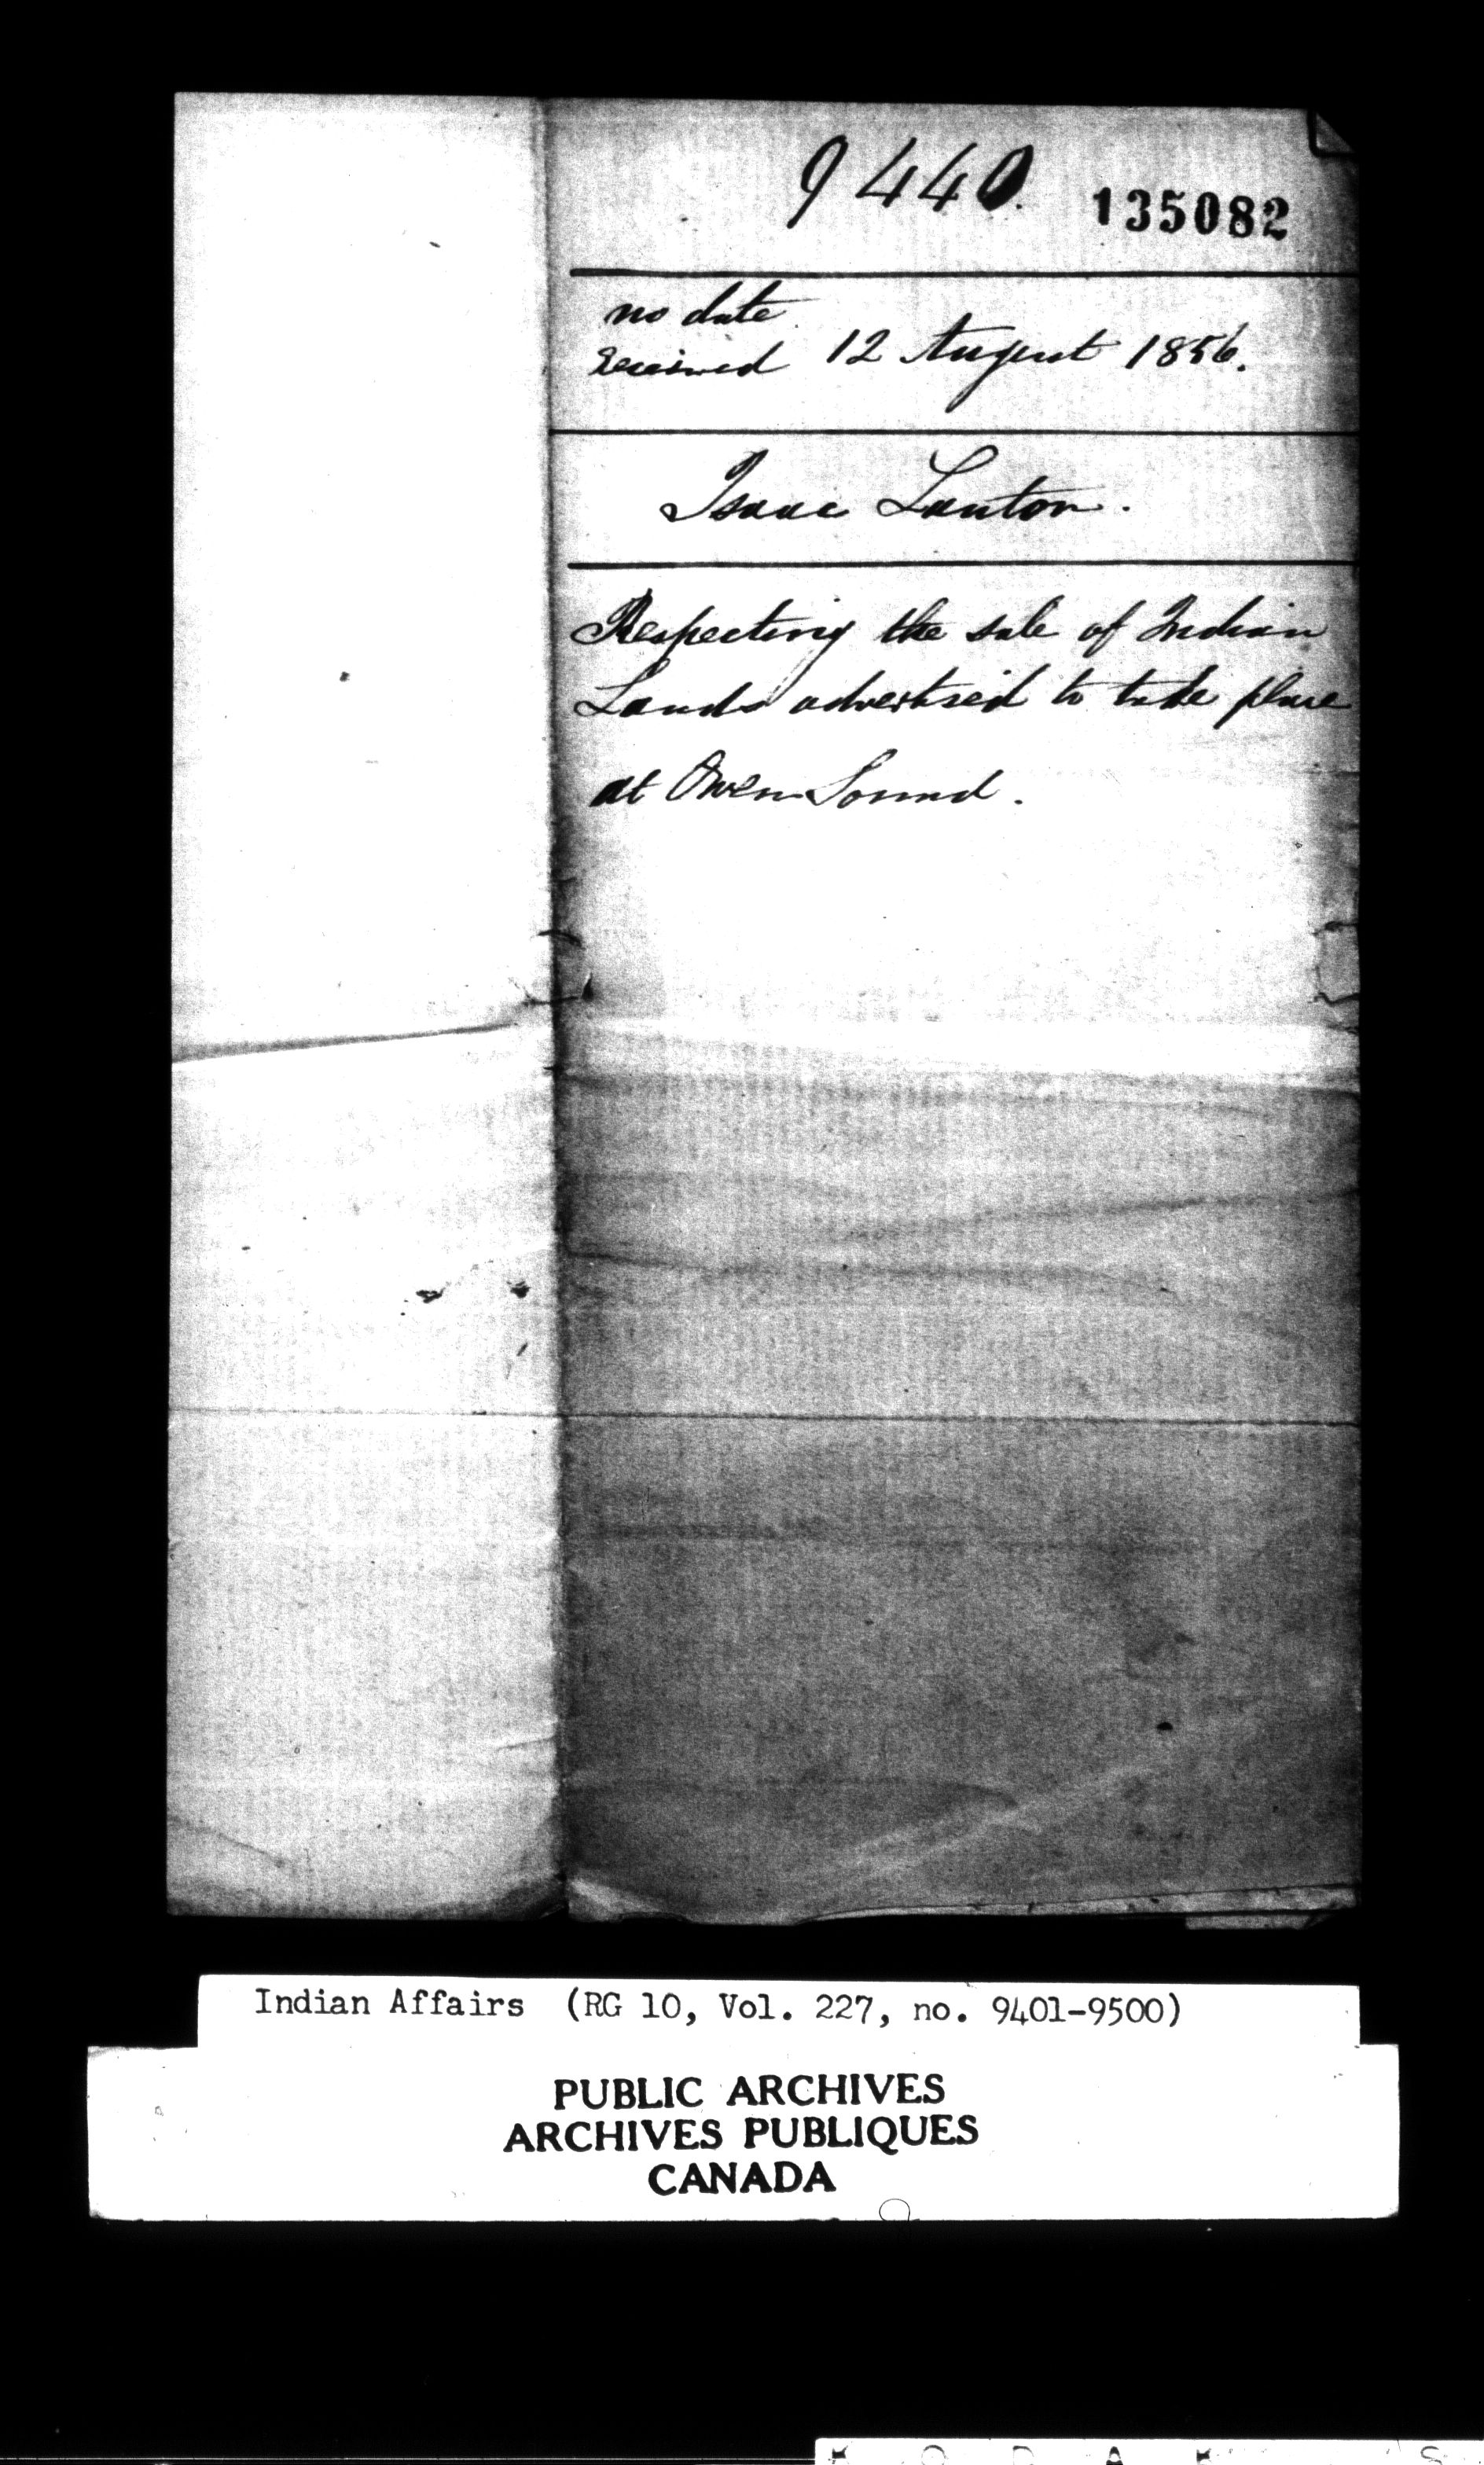 9440 135082
no date
received 12 August 1856.
Isaac Lauton.
Respecting the sale of Indian
Lands advertised to take place
at Owen Sound.
Indian Affairs (RG 10, Vol. 227, no. 9401-9500)
PUBLIC ARCHIVES
ARCHIVES PUBLIQUES
CANADA